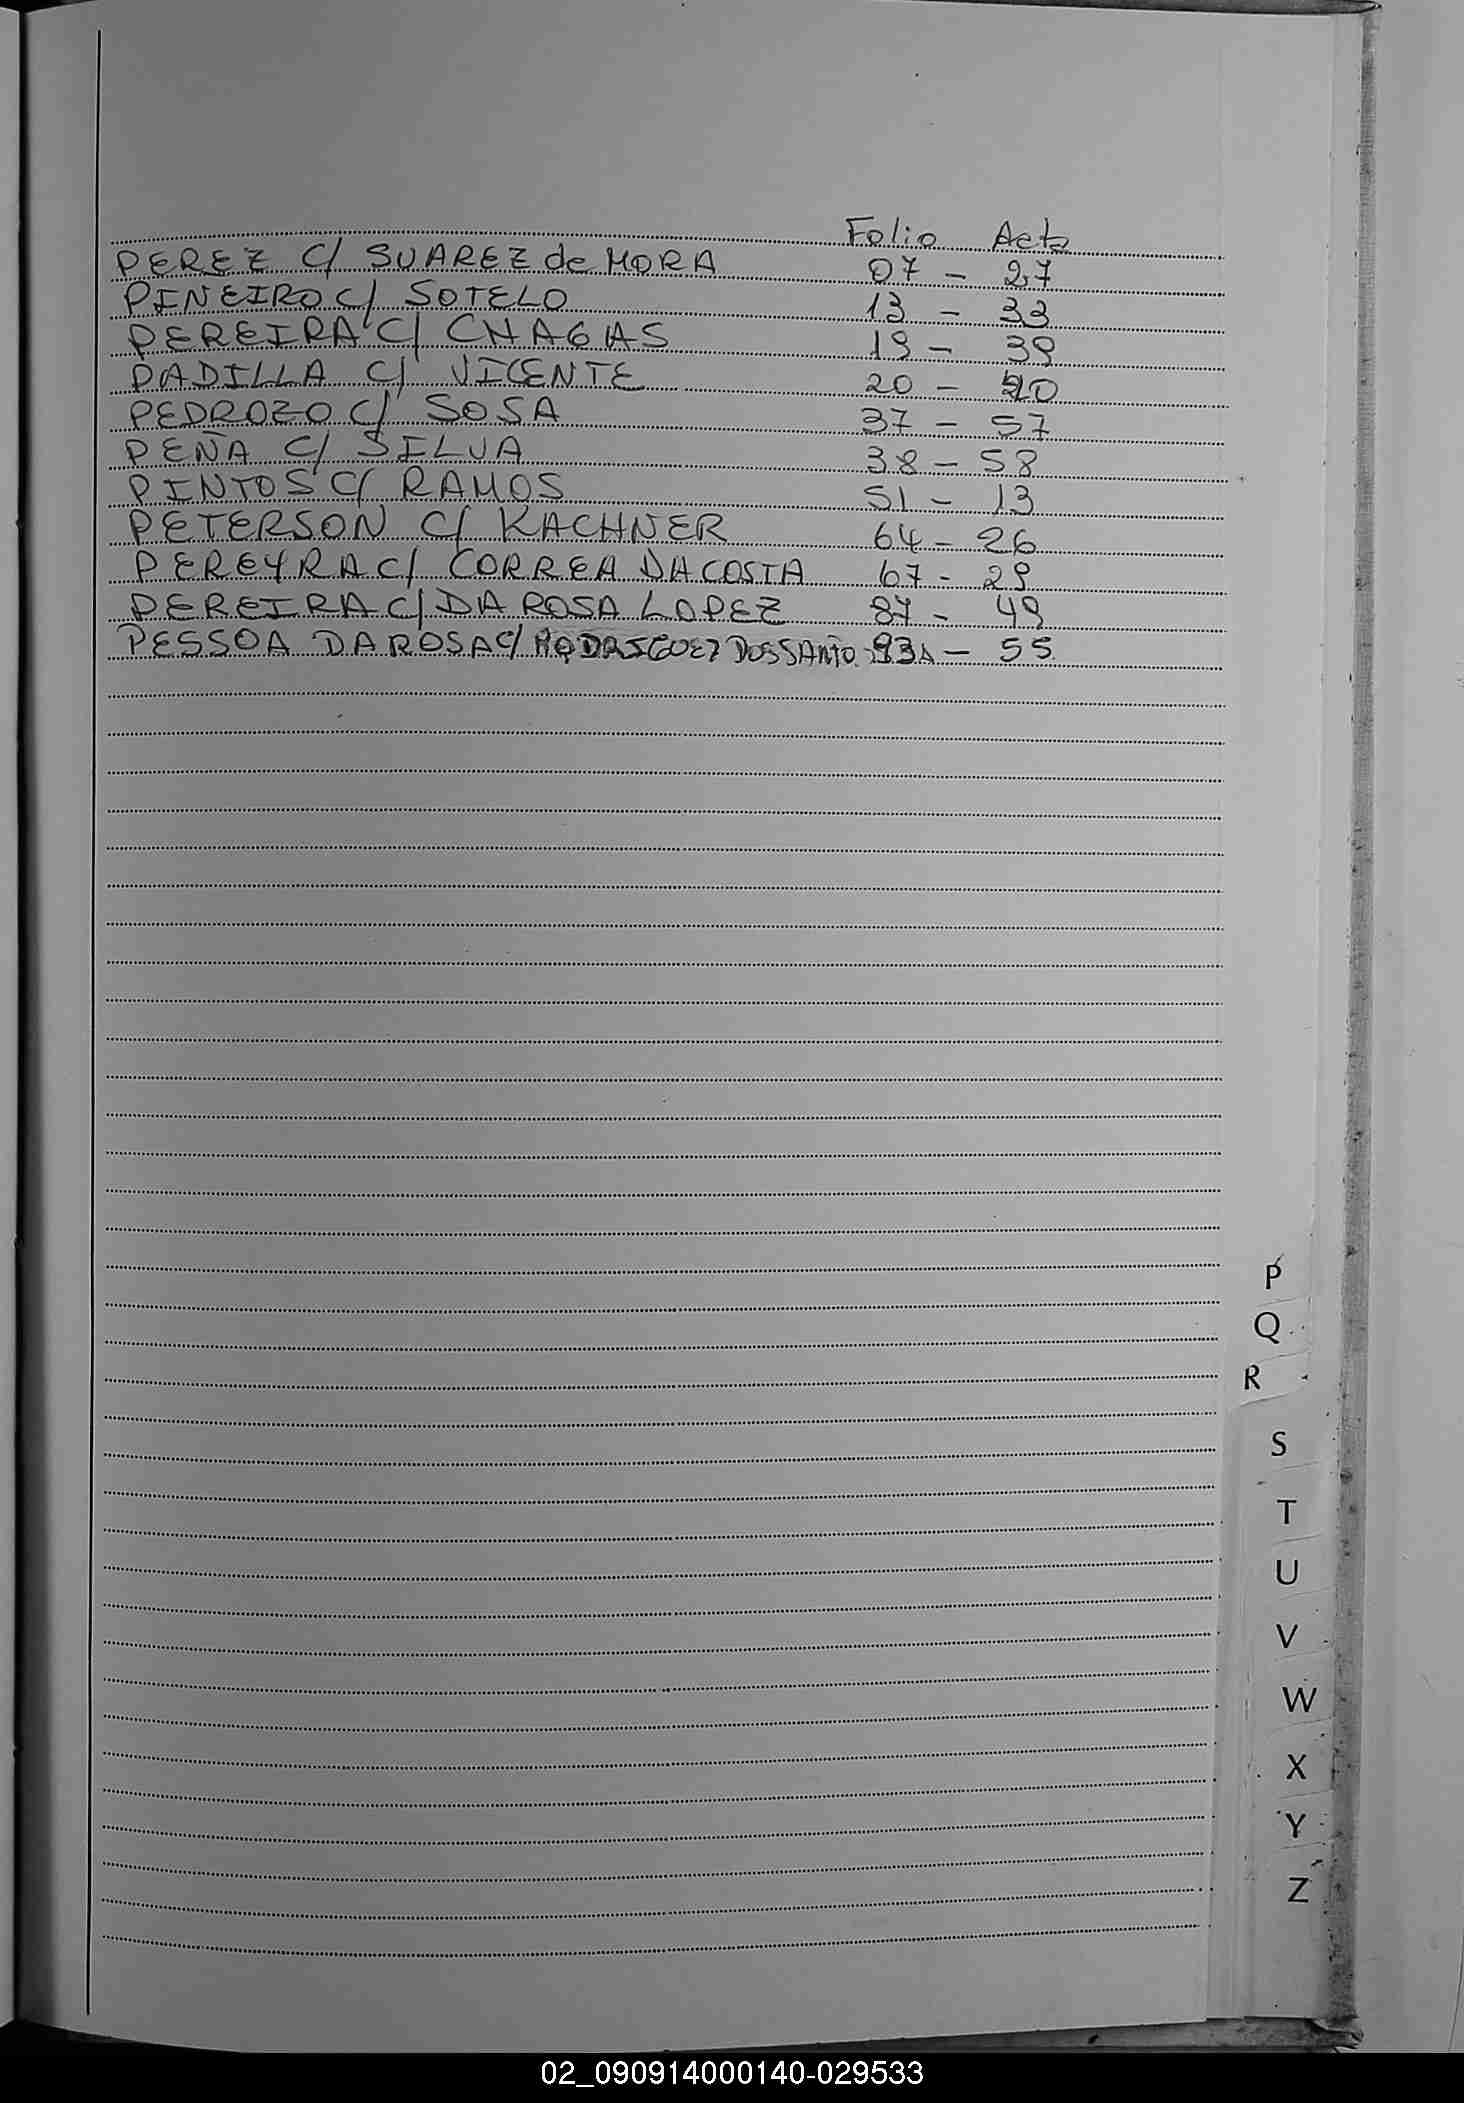 Folio Acta
PEREZ C/ SUAREZ de MORA 07 - 27
PINEIRO C/ SOTELO 13 - 33
PEREIRA C/ CHAGAS 19 - 39
PADILLA C/ VICENTE 20 - 40
PEDROZO C/ SOSA 37 - 57
PEÑA C/ SILVA 38 - 58
PINTOS C/ RAMOS 51 - 13
PETERSON C/ KACHNER 64 - 26
PEREYRA C/ CORREA DACOSTA 67 - 29
PEREIRA C/ DA ROSA LOPEZ 87 - 49
PESSOA DA ROSA C/ RODRIGUEZ DOS SANTO - 55
P
Q
R
S
T
U
V
W
X
Y
Z
02_090914000140-029533